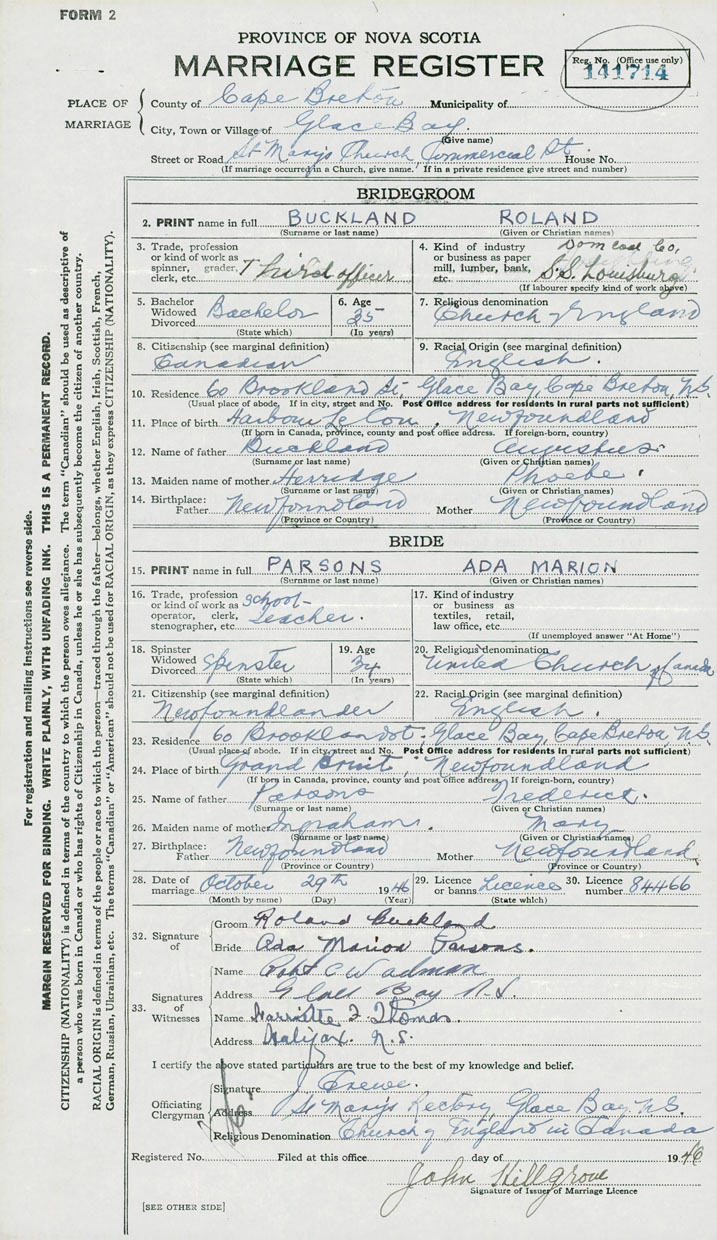 FORM 2
PROVINCE OF NOVA SCOTIA
MARRIAGE REGISTER
Reg. No. (Office use only)
141714
PLACE OF MARRIAGE
County of Cape Breton Municipality of
City, Town or Village of Glace Bay
(Give name)
Street or Road St Mary's Church Commercial St. House No.
(If marriage occurred in a Church, give name. If in a private residence give street and number)
BRIDEGROOM
2. PRINT name in full BUCKLAND ROLAND
(Surname or last name) (Given or Christian names)
3. Trade, profession or kind of work as spinner, grader, clerk, etc. Third officer
4. Kind of industry or business as paper mill, lumber, bank, etc. Dom coal Co, S.S. Louisburg
(If labourer specify kind of work above)
5. Bachelor Widowed Divorced Bachelor
(State which)
6. Age 35
(In years)
7. Religious denomination
Church of England
8. Citizenship (see marginal definition)
Canadian
9. Racial Origin (see marginal definition)
English.
10. Residence 60 Brookland St. Glace Bay, Cape Breton, N.S.
(Usual place of abode. If in city, street and No. Post Office address for residents in rural parts not sufficient)
11. Place of birth Harbour Le Cou, Newfoundland
(If born in Canada, province, county and post office address. If foreign-born, country)
12. Name of father Buckland Augustus
(Surname or last name) (Given or Christian names)
13. Maiden name of mother Herridge Phoebe
(Surname or last name) (Given or Christian names)
14. Birthplace: Father Newfoundland Mother Newfoundland
(Province or Country) (Province or Country)
BRIDE
15. PRINT name in full PARSONS ADA MARION
(Surname or last name) (Given or Christian names)
16. Trade, profession or kind of work as operator, clerk, stenographer, etc. School-teacher.
17. Kind of industry or business as textiles, retail, law office, etc.
(If unemployed answer "At Home")
18. Spinster Widowed Divorced Spinster
(State which)
19. Age 34
(In years)
20. Religious denomination
United Church of Canada
21. Citizenship (see marginal definition)
Newfoundlander
22. Racial Origin (see marginal definition)
English.
23. Residence 60 Brookland st. Glace Bay, Cape Breton, N.S.
(Usual place of abode. If in city, street and No. Post Office address for residents in rural parts not sufficient)
24. Place of birth Grand Bruit, Newfoundland
(If born in Canada, province, county and post office address. If foreign-born, country)
25. Name of father Parsons Frederick.
(Surname or last name) (Given or Christian names)
26. Maiden name of mother Ingraham. Mary
(Surname or last name) (Given or Christian names)
27. Birthplace: Father Newfoundland Mother Newfoundland
(Province or Country) (Province or Country)
28. Date of marriage October 29th 1946
(Month by name) (Day) (Year)
29. Licence or banns Licence
(State which)
30. Licence number 84466
32. Signature of
Groom Roland Buckland
Bride Ada Marion Parsons.
33. Signatures of Witnesses
Name Robt C Wadman
Address Glace Bay N.S.
Name Harriette F Thomas.
Address Halifax. N.S.
I certify the above stated particulars are true to the best of my knowledge and belief.
Officiating Clergyman
Signature J Crewe.
Address St Mary's Rectory, Glace Bay. N.S.
Religious Denomination Church of England in Canada
Registered No. Filed at this office day of 1946
John Hillgrove
Signature of Issuer of Marriage Licence
[SEE OTHER SIDE]
For registration and mailing instructions see reverse side.
MARGIN RESERVED FOR BINDING. WRITE PLAINLY, WITH UNFADING INK. THIS IS A PERMANENT RECORD.
CITIZENSHIP (NATIONALITY) is defined in terms of the country to which the person owes allegiance. The term "Canadian" should be used as descriptive of
a person who was born in Canada or who has rights of Citizenship in Canada, unless he or she has subsequently become the citizen of another country.
RACIAL ORIGIN is defined in terms of the people or race to which the person—traced through the father—belongs, whether English, Irish, Scottish, French,
German, Russian, Ukrainian, etc. The terms "Canadian" or "American" should not be used for RACIAL ORIGIN, as they express CITIZENSHIP (NATIONALITY).